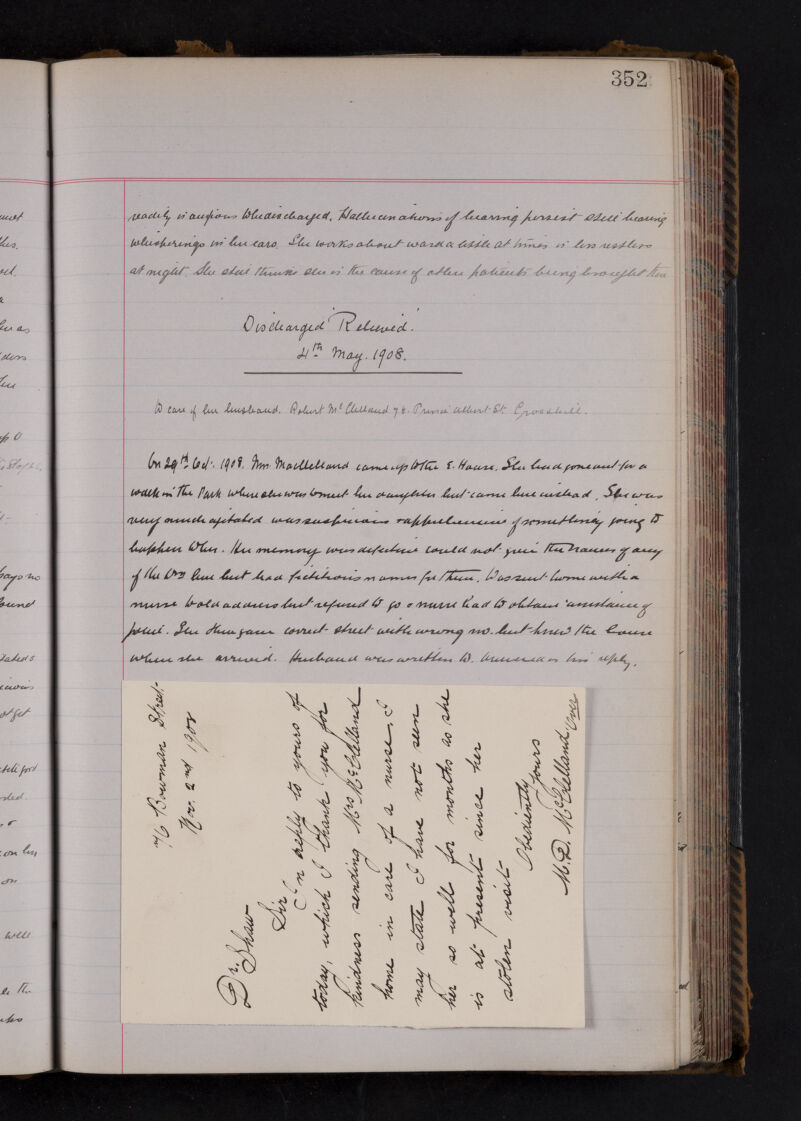 352
readily is anxious to be discharged. Hallucinations of hearing persist still hearing
whisperings in her ears. She works about ward a little at times is less restless
at night. She still thinks she is the cause of other patients being brought here
Discharged Relieved.
4th May. 1908.
To care of her husband. Robert McClelland 78. Prince Albert St. Crosshill.
On 29th Oct. 1908. Mrs. MacClelland came up to the E. House. She had gone out for a
walk in the Park where she was to meet her daughter but came here instead. She was
very much agitated was suspicious & apprehensive of something going to
happen to her. Her memory was defective could not give the names of any
of the Drs here but had fictitious names for them. Was sent home with a
nurse to old address but refused to go & nurse had to obtain assistance of
police. She then gave correct street with wrong no. but knew the house
when she arrived. Husband was written to. Annexed is his reply.
76 Bowman Street
Nov. 2nd 1908
Dr. Shaw
Sir
In reply to yours of
today, which I thank you for
kindness sending Mrs McClelland
home in care of a nurse, I
may state I have not seen
her so well for months as she
is at present since her
stolen visit
Obediently Yours
M. D. McClelland